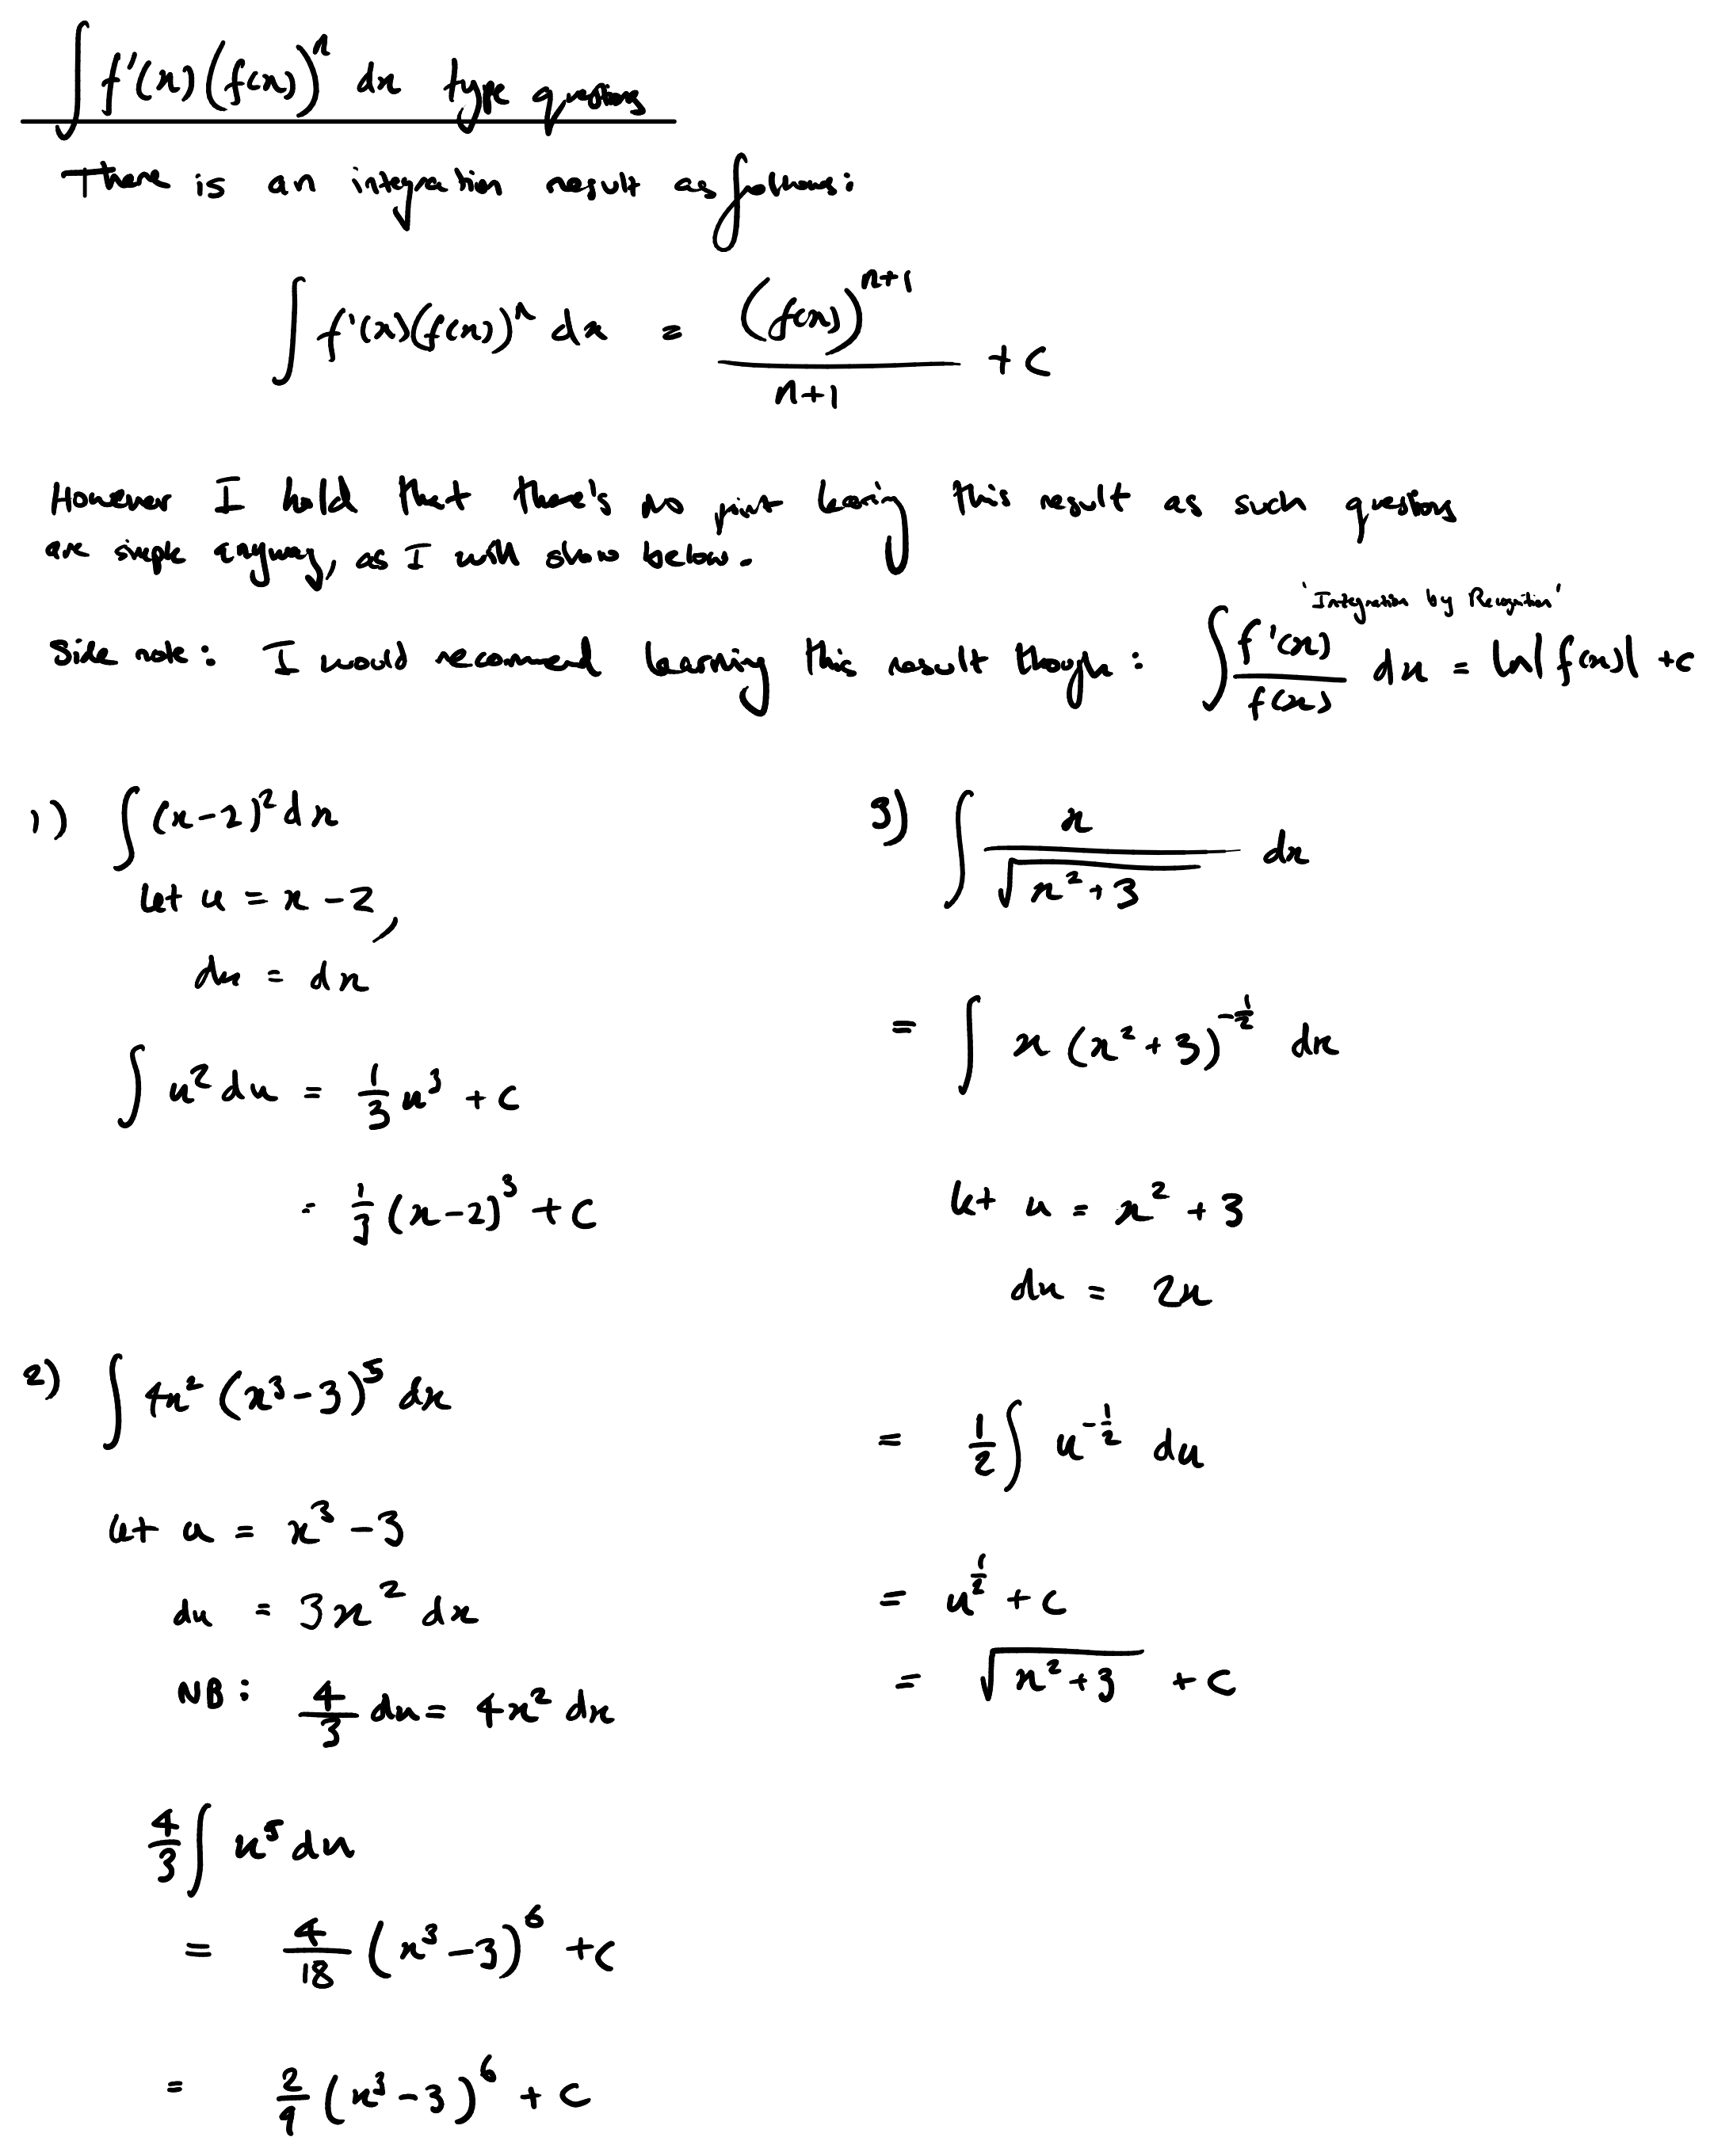 ∫ f'(x)(f(x))^n dx type questions
There is an integration result as follows:
∫ f'(x)(f(x))^n dx = (f(x))^(n+1) / (n+1) + c
However I hold that there's no point learning this result as such questions
are simple anyway, as I will show below.
'Integration by Recognition'
Side note: I would recommend learning this result though: ∫ f'(x)/f(x) dx = ln|f(x)| + c
1) ∫ (x-2)^2 dx
let u = x - 2,
du = dx
∫ u^2 du = 1/3 u^3 + c
= 1/3 (x-2)^3 + c
2) ∫ 4x^2 (x^3-3)^5 dx
let u = x^3 - 3
du = 3x^2 dx
NB: 4/3 du = 4x^2 dx
4/3 ∫ u^5 du
= 4/18 (x^3-3)^6 + c
= 2/9 (x^3-3)^6 + c
3) ∫ x / √(x^2+3) dx
= ∫ x (x^2+3)^(-1/2) dx
let u = x^2 + 3
du = 2x
= 1/2 ∫ u^(-1/2) du
= u^(1/2) + c
= √(x^2+3) + c